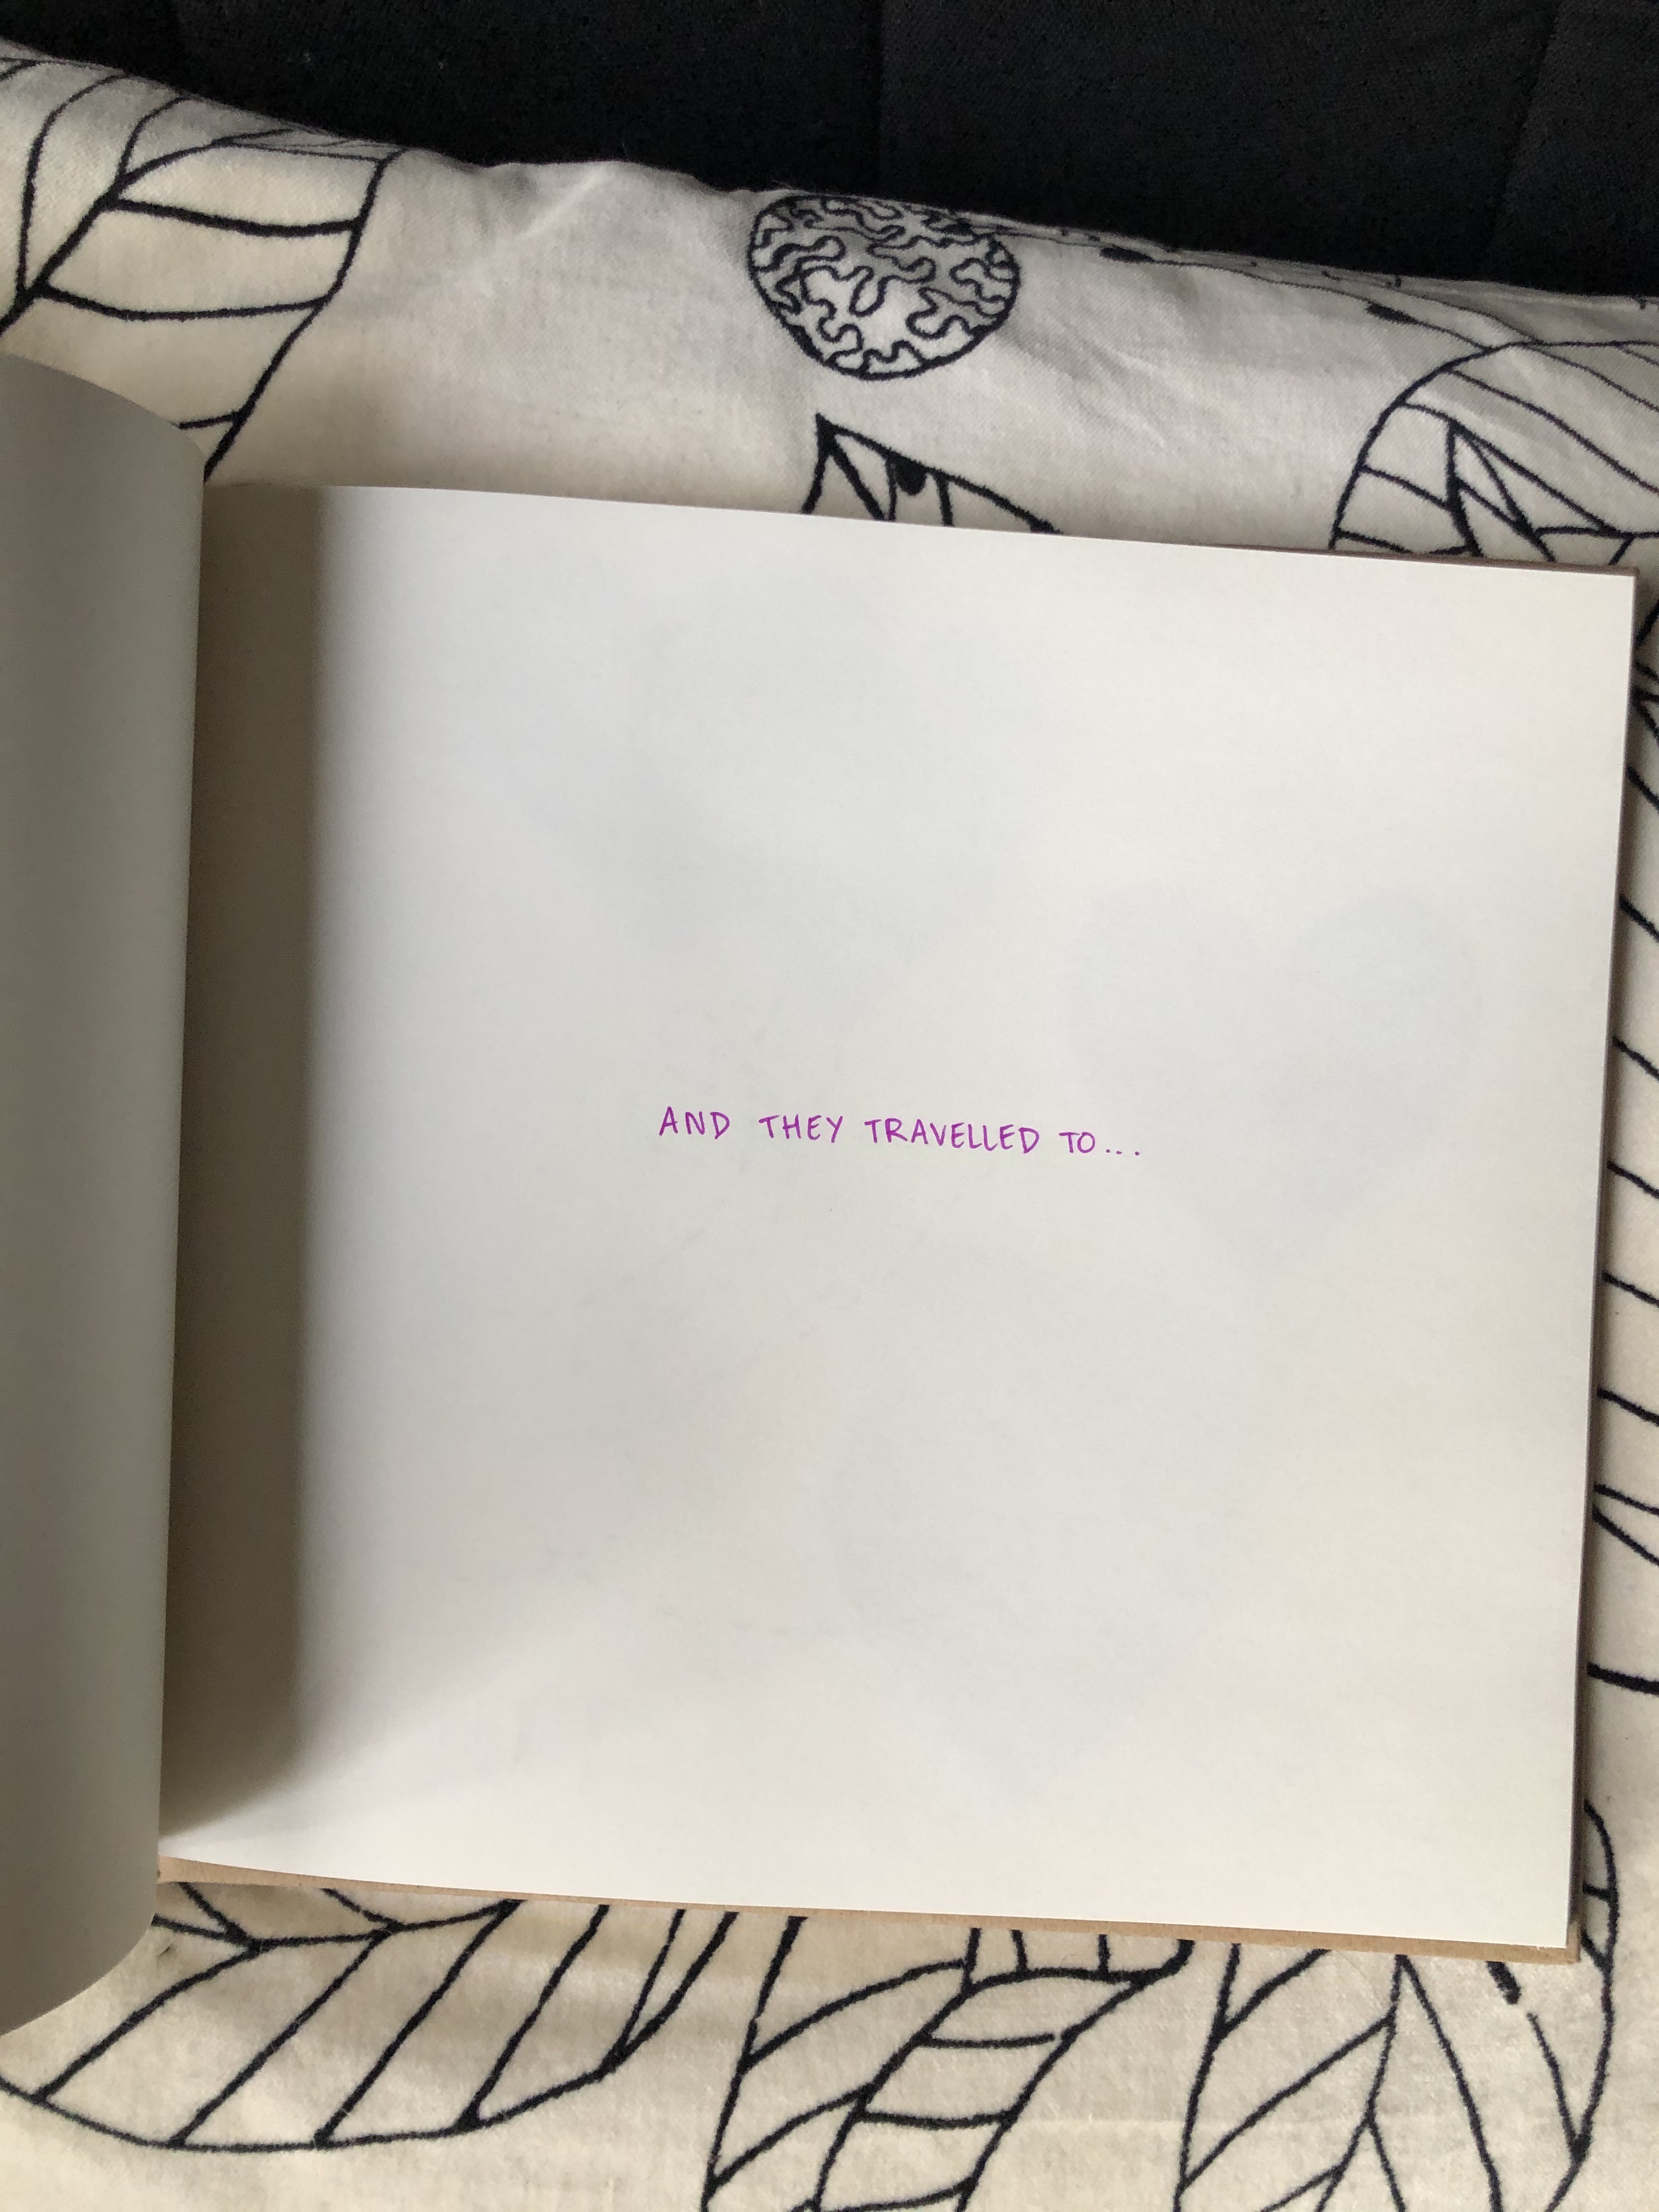 AND THEY TRAVELLED TO...